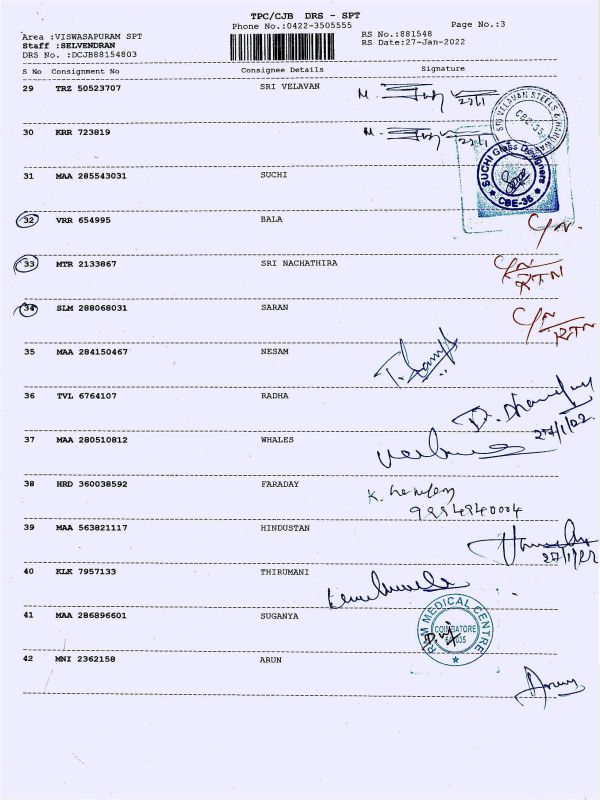 TPC/CJB DRS - SPT
Phone No.:0422-3505555
Page No.:3
Area :VISWASAPURAM SPT
RS No.:881548
Staff :SELVENDRAN
RS Date:27-Jan-2022
DRS No. :DCJB88154803
S No Consignment No Consignee Details Signature
29 TRZ 50523707 SRI VELAVAN
30 KRR 723819
SRI VELAVAN STEELS &
CBE-35
31 MAA 285543031 SUCHI
SUCHI Glass Designers
CBE-35
32 VRR 654995 BALA C/N.
33 MTR 2133867 SRI NACHATHIRA C/N
RTN
34 SLM 288068031 SARAN C/N
RTN
35 MAA 284150467 NESAM
36 TVL 6764107 RADHA
37 MAA 280510812 WHALES
38 HRD 360038592 FARADAY
39 MAA 563821117 HINDUSTAN
27/1/22
40 KLK 7957133 THIRUMANI
41 MAA 286896601 SUGANYA
MEDICAL CENTRE
COIMBATORE
42 MNI 2362158 ARUN